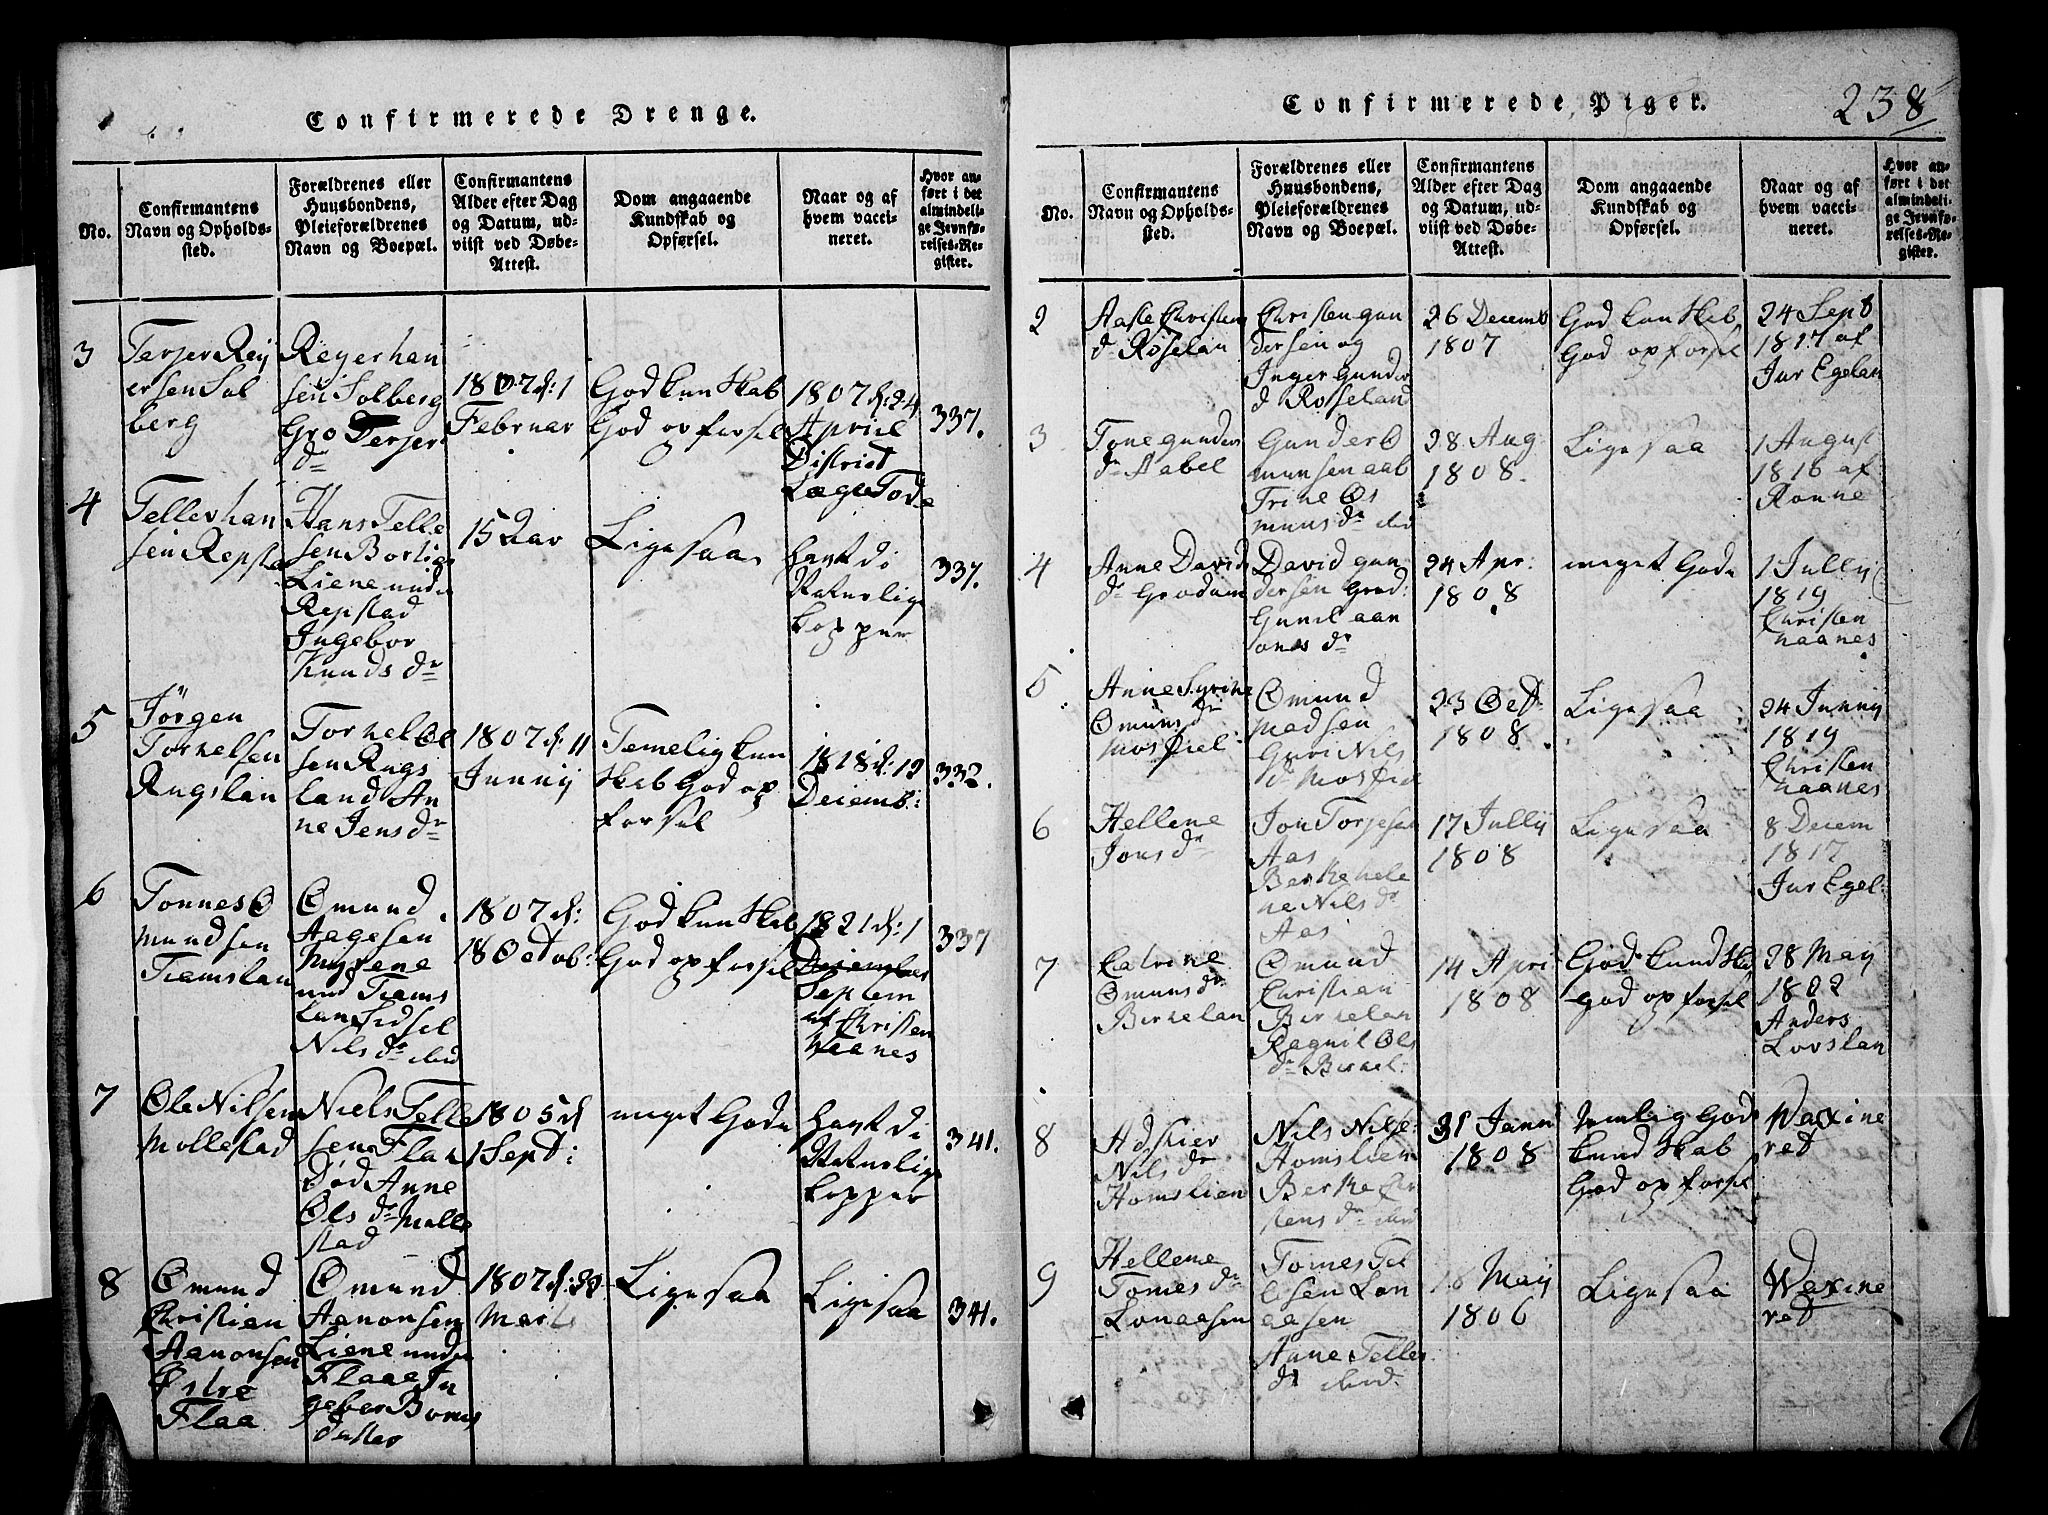 Confirmerede Drenge.
No.
Confirmantens
Navn og Opholds-
sted.
Forældrenes eller
Huusbondens,
Pleieforældrenes
Navn og Boepæl.
Confirmantens
Alder efter Dag
og Datum, ud-
viist ved Døbe-
Attest.
Dom angaaende
Kundskab og
Opførsel.
Naar og af
hvem vacci-
neret.
Hvor an-
ført i det
almindeli-
ge Jevnfø-
relses-Re-
gister.
3
Terjer Rey
ersen Sol
berg
Reyer han
sen Solberg
Gro Terjer
dr
1807 d: 1
Februar
God kunskab
God opforsel
1807 d: 24
Apriil
District
Læge Tode
337.
4
Teller han
sen Repsta
Hans Telle
sen Borlies
Liene under
Repstad
Ingebor
Knuds dr
15 2 aar
Ligesaa
havt di
Naturlige
kopper
337.
5
Jörgen
Torkelsen
Rugslan
Torkel Ol
sen Rugs
land An
ne Jens dr
1807 d: 11
Junny
Temelig kun
skab God op
forsel
1818 d: 12
Decemb:
332.
6
Tonnes O
mundsen
Tramslan
Omund
Aagesen
Myrene
und Trams
lan Sidsel
Nils dr ibid
1807 d:
18 Octob:
God kunskab
God opforsel
1821 d: 1
Septem
af Christen
Haanes
337
7
Ole Nilsen
Mollestad
Niels Telle
sen Flaa
Død Anne
Ols dr Molle
stad
1805 d
1 Sept:
meget Gode
havt di
Naturlige
kopper
341.
8
Omund
Christian
Aanonsen
Østre
Flaa
Omund
Aanonsen
Liene under
Flaae In
geber Boms
datter
1807 d: 30
Marts
Ligesaa
Ligesaa
341.
Confirmerede Piger.
238
No.
Confirmantens
Navn og Opholds-
sted.
Forældrenes eller
Huusbondens,
Pleieforældrenes
Navn og Boepæl.
Confirmantens
Alder efter Dag
og Datum, ud-
viist ved Døbe-
Attest.
Dom angaaende
Kundskab og
Opførsel.
Naar og af
hvem vacci-
neret.
Hvor an-
ført i det
almindeli-
ge Jevnfø-
relses-Re-
gister.
2
Aasle Christens
dr Röselan
Christen gun
dersen og
Inger Gunder
d Rosseland
26 Decemb
1807
God kunskab
God opforsel
24 Sept
1817 af
Jur Egelan
3
Tone gunders
dr Aabel
Gunder O
munsen aab
Trine Os
muns dr ibid
28 Aug
1808.
Ligesaa
1 August
1816 af
Ronne
4
Anne David
dr Grodum
David gun
dersen Grod:
Gunil aan
ons dr
24 Apr:
1808
meget Gode
1 Jully
1819
Christen
haanes
5
Anne Syrine
Omuns dr
Mosfiel:
Omund
Madsen
Guri Nils
dr Mosfiel
23 Oct
1808
Ligesaa
24 Junny
1819
Christen
haanes
6
Hellene
Jons dr
Jon Torjesen
Aas
Berthe hele
ne Nils dr
Aas
17 Jully
1808
Ligesaa
8 Decem
1817
Jur Egel:
7
Catrine
Omuns dr
Birkelan
Omund
Christian
Birkelan
Ragnil Ols
dr Birkel:
14 Apri
1808
God kundska
God opforsel
28 May
1802
Anders
Lovslan
8
Adskier
Nils dr
Homslien
Nils Nilse:
Homslien
Berthe Chr
stens dr ibid
31 Janu
1808
temlig God
kundskab
God opforsel
Waxine
ret
9
Hellene
Tomes dr
Lonaasen
Tomes Tel
lesen Lon
aasen
Anne Telles
dr ibid.
16 May
1806
Ligesaa
Waxine
ret